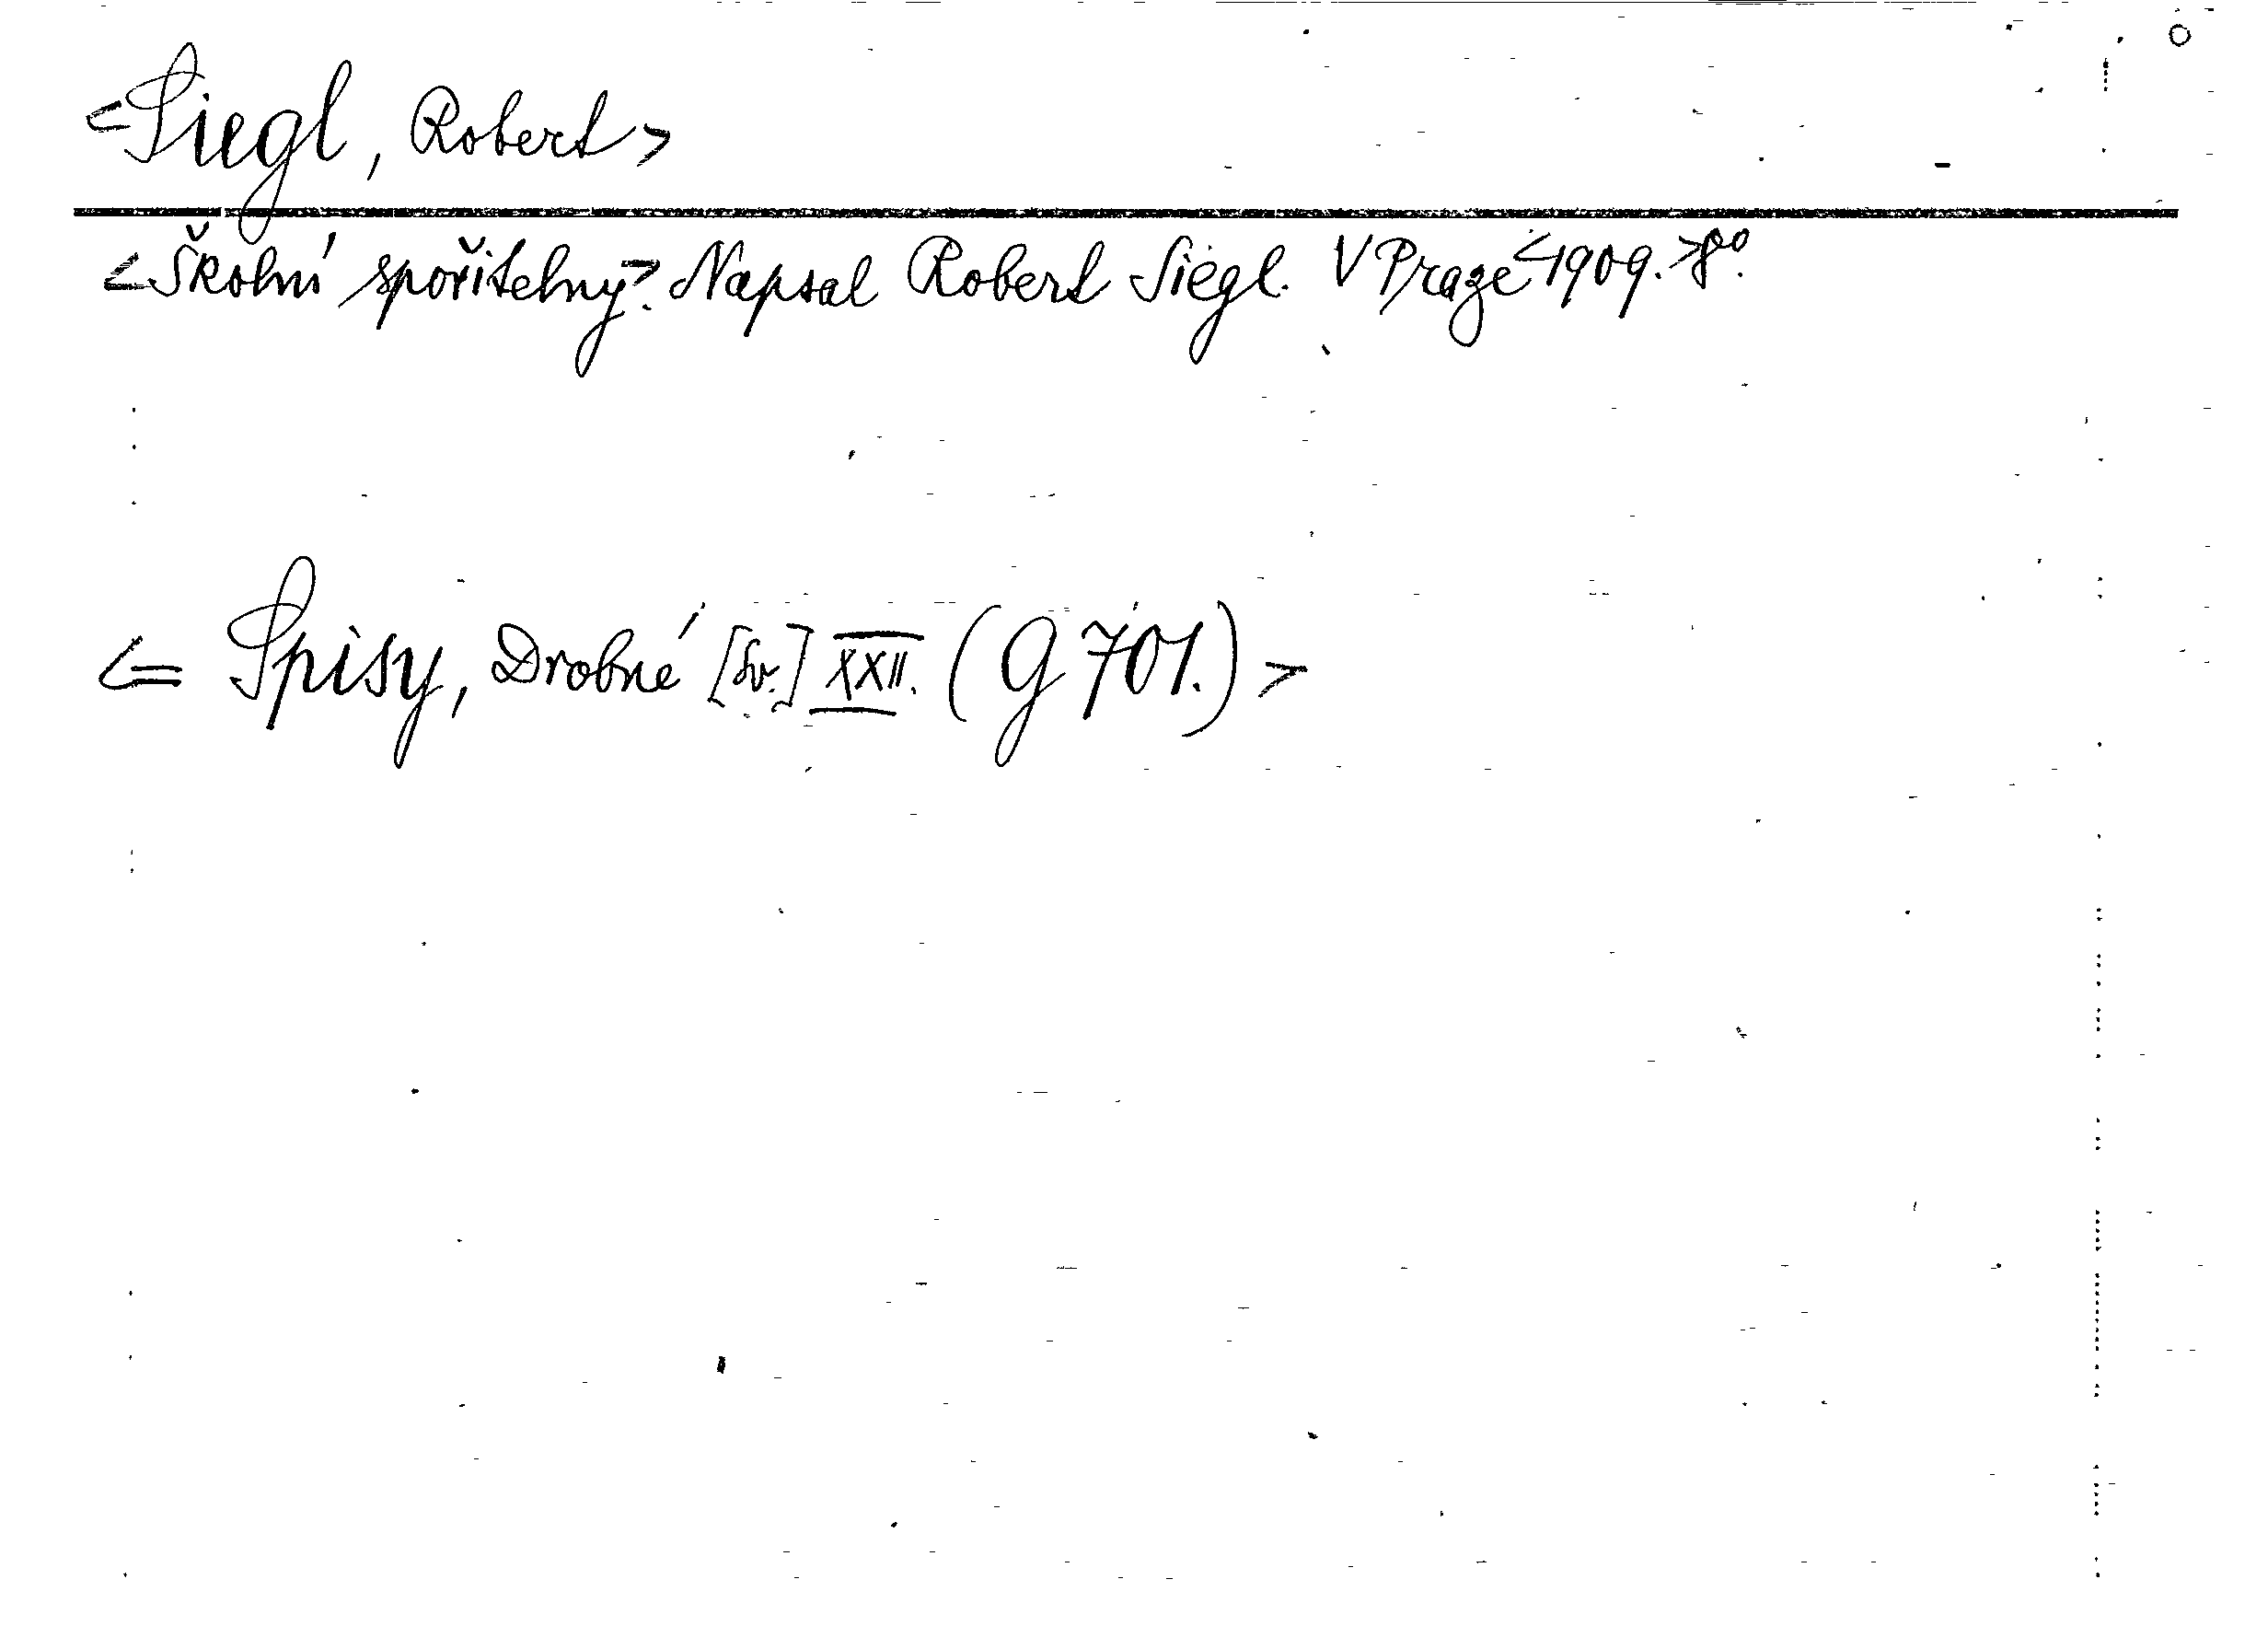 <Siegl, Robert>
<Školní spořitelny>. Napsal Robert Siegl. V Praze <1909.> 8°.
<= Spisy, Drobné [sv.] XXII. (G 701.)>